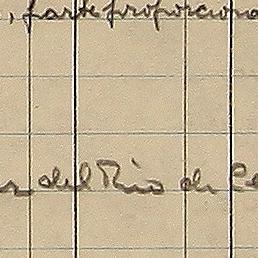 , parte proporciona
del Rio de Ce